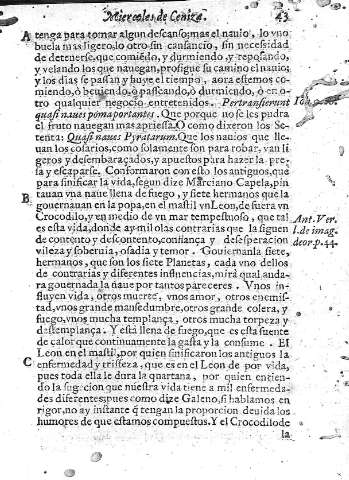 Miercoles de Ceniza. 43
A tenga para tomar algun descanso; mas el nauio, lo vno
buela mas ligero, lo otro sin cansancio, sin necesidad
de detenerse, que comiẽdo, y durmiendo, y reposando,
y velando los que nauegan, prosigue su camino el nauio;
y los dias se passan y huye el tiempo, aora estemos co-
miendo, ò beuiendo, ò paseando, ò durmiendo, ò en o-
tro qualquier negocio entretenidos. Pertransierunt
quasi naues poma portantes. Que porque no se les pudra
el fruto nauegan mas apriessa. O como dizeron los Se-
tenta: Quasi naues Pyratarum. Que los nauios que lle-
uan los cosarios, como solamente son para robar, van li
geros y desembaraçados, y apuestos para hazer la pre-
sa y escaparse. Conformaron con esto los antiguos, que
para sinificar la vida, segun dize Marciano Capela, pin
tauan vna naue llena de fuego, y siete hermanos que la
B gouernauan en la popa, en el mastil vn Leon, de fuera vn
Crocodilo, y en medio de vn mar tempestuoso, que tal
es esta vida, donde ay mil olas contrarias que la siguen
de contento y descontento, confiança y desesperacion
vileza y soberuia, osadia y temor. Gouiernanla siete
hermanos, que son los siete Planetas, cada vno dellos
de contrarias y diferentes influencias, mirà qual anda-
ra gouernada la naue por tantos pareceres. Vnos in-
fluyen vida, otros muerte, vnos amor, otros enemis-
tad, vnos grande mansedumbre, otros grande colera, y
fuego, vnos mucha templança, otros mucha torpeza y
destemplança. Y està llena de fuego, que es esta fuente
de calor que continuamente la gasta y la consume. El
Leon en el mastil, por quien sinificaron los antiguos la
C enfermedad y tristeza, que es en el Leon de por vida,
pues toda ella le dura la quartana, por quien entien-
do la sugecion que nuestra vida tiene a mil enfermeda-
des diferentes; pues como dize Galeno, si hablamos en
rigor, no ay instante q̃ tengan la proporcion deuida los
humores de que estamos compuestos. Y el Crocodilo de
la
Ant. Ver.
l. de imag.
deor p. 44.